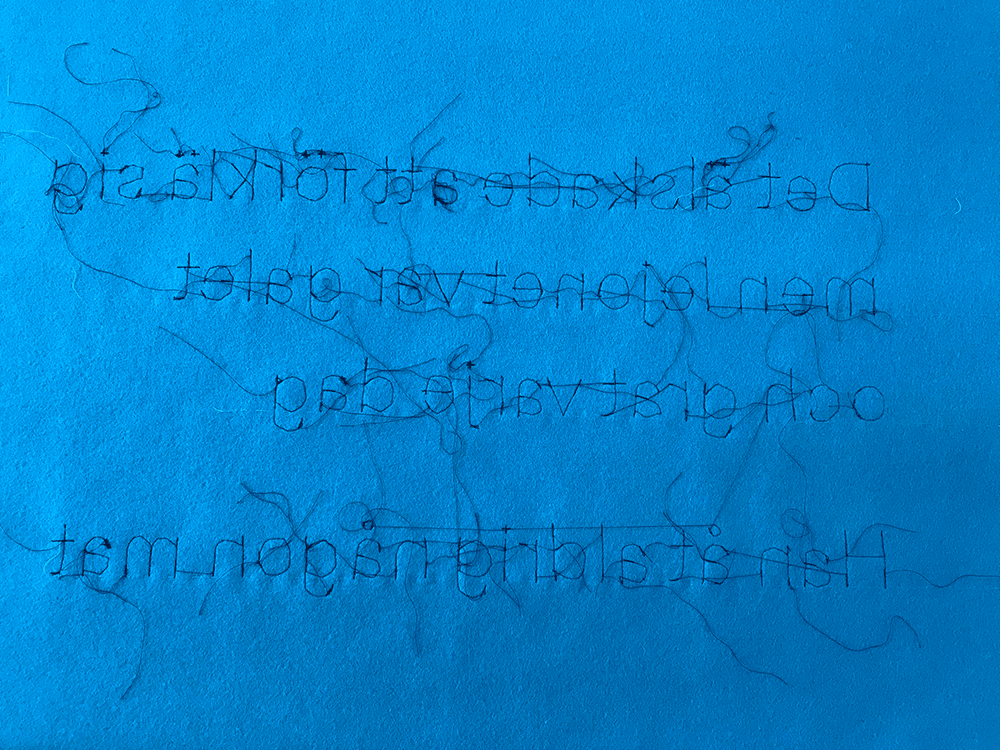 Det älskade att förklä sig
men lejonet var galet
och grät varje dag
Han åt aldrig någon mat